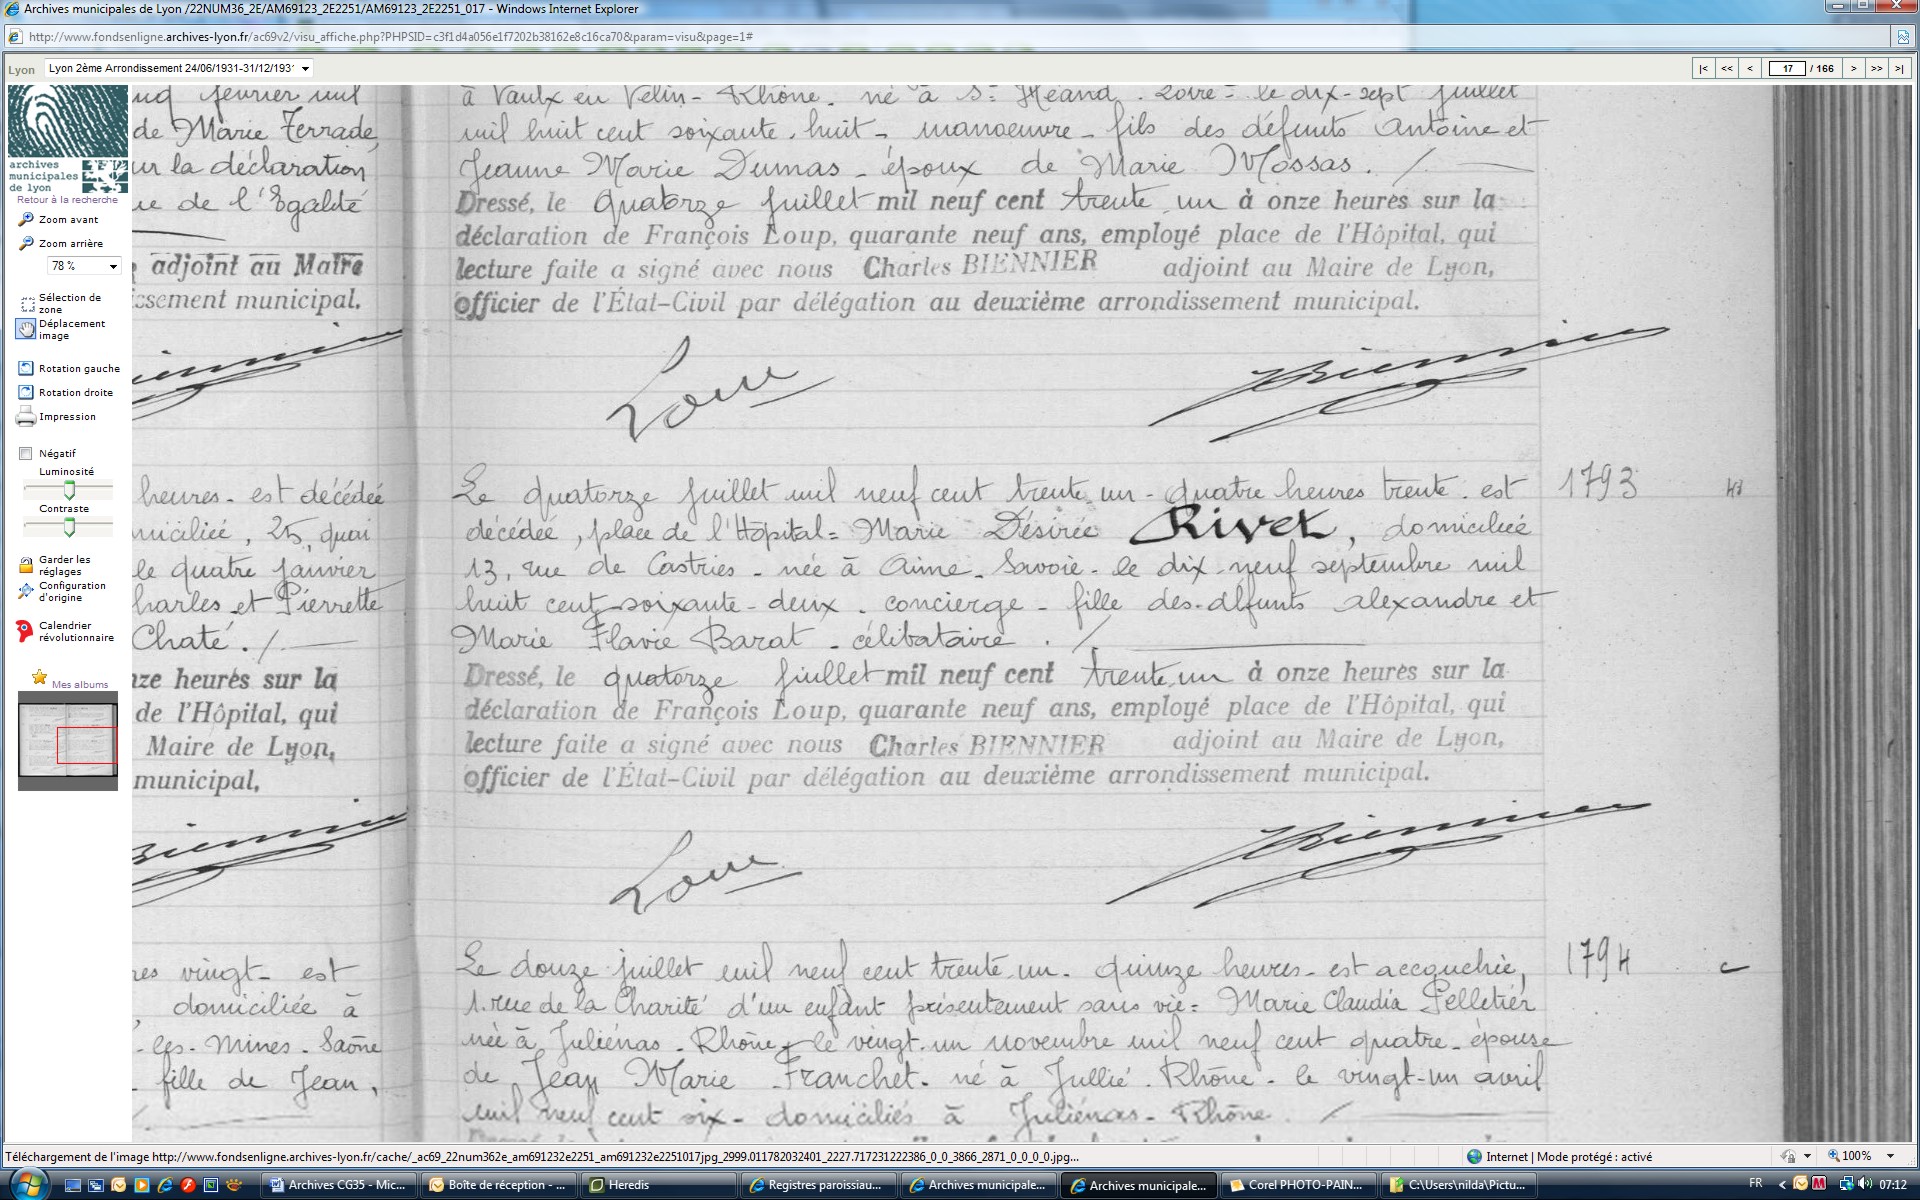 Archives municipales de Lyon /22NUM36_2E/AM69123_2E2251/AM69123_2E2251_017 - Windows Internet Explorer
http://www.fondsenligne.archives-lyon.fr/ac69v2/visu_affiche.php?PHPSID=c3f1d4a056e1f7202b38162e8c16ca70&param=visu&page=1#
Lyon
Lyon 2ème Arrondissement 24/06/1931-31/12/193
|< << < 17 / 166 > >> >|
archives
municipales
de lyon
Retour à la recherche
Zoom avant
Zoom arrière
78 %
Sélection de
zone
Déplacement
image
Rotation gauche
Rotation droite
Impression
Négatif
Luminosité
Contraste
Garder les
réglages
Configuration
d'origine
Calendrier
révolutionnaire
Mes albums
février mil
de Marie Terrade
ur la déclaration
ue de l'Egalité
adjoint au Maire
issement municipal.
heures - est décédée
miciliée, 25, quai
le quatre janvier
harles et Pierrette
Chaté. /.
nze heures sur la
de l'Hôpital, qui
Maire de Lyon,
municipal,
res vingt - est
domiciliée à
- les - Mines - Saône
- fille de Jean,
à Vaulx en Velin - Rhône - né à St Héand - Loire = le dix-sept juillet
mil huit cent soixante-huit - manoeuvre - fils des défunts Antoine et
Jeanne Marie Dumas - époux de Marie Mossas. /
Dressé, le quatorze juillet mil neuf cent trente un à onze heures sur la
déclaration de François Loup, quarante neuf ans, employé place de l'Hôpital, qui
lecture faite a signé avec nous Charles BIENNIER adjoint au Maire de Lyon,
officier de l'État-Civil par délégation au deuxième arrondissement municipal.
Loup Biennier
Le quatorze juillet mil neuf cent trente un - quatre heures trente - est 1793
décédée, place de l'Hôpital = Marie Désirée Rivet, domiciliée
13, rue de Castries - née à Aime - Savoie - le dix-neuf septembre mil
huit cent soixante-deux - concierge - fille des défunts Alexandre et
Marie Flavie Barat - célibataire. /
Dressé, le quatorze juillet mil neuf cent trente un à onze heures sur la
déclaration de François Loup, quarante neuf ans, employé place de l'Hôpital, qui
lecture faite a signé avec nous Charles BIENNIER adjoint au Maire de Lyon,
officier de l'État-Civil par délégation au deuxième arrondissement municipal.
Loup Biennier
Le douze juillet mil neuf cent trente un - quinze heures - est accouchée, 1794
1. rue de la Charité d'un enfant présentement sans vie = Marie Claudia Pelletier
née à Juliénas - Rhône - le vingt-un novembre mil neuf cent quatre - épouse
de Jean Marie Franchet - né à Jullié - Rhône - le vingt-un avril
mil neuf cent six - domiciliés à Juliénas - Rhône. /
Téléchargement de l'image http://www.fondsenligne.archives-lyon.fr/cache/_ac69_22num362e_am691232e2251_am691232e2251017jpg_2999.011782032401_2227.717231222386_0_0_3866_2871_0_0_0_0.jpg...
Internet | Mode protégé : activé
100%
Archives CG35 - Mic...
Boîte de réception - ...
Heredis
Registres paroissiau...
Archives municipale...
Archives municipale...
Corel PHOTO-PAIN...
C:\Users\nilda\Pictu...
FR
07:12